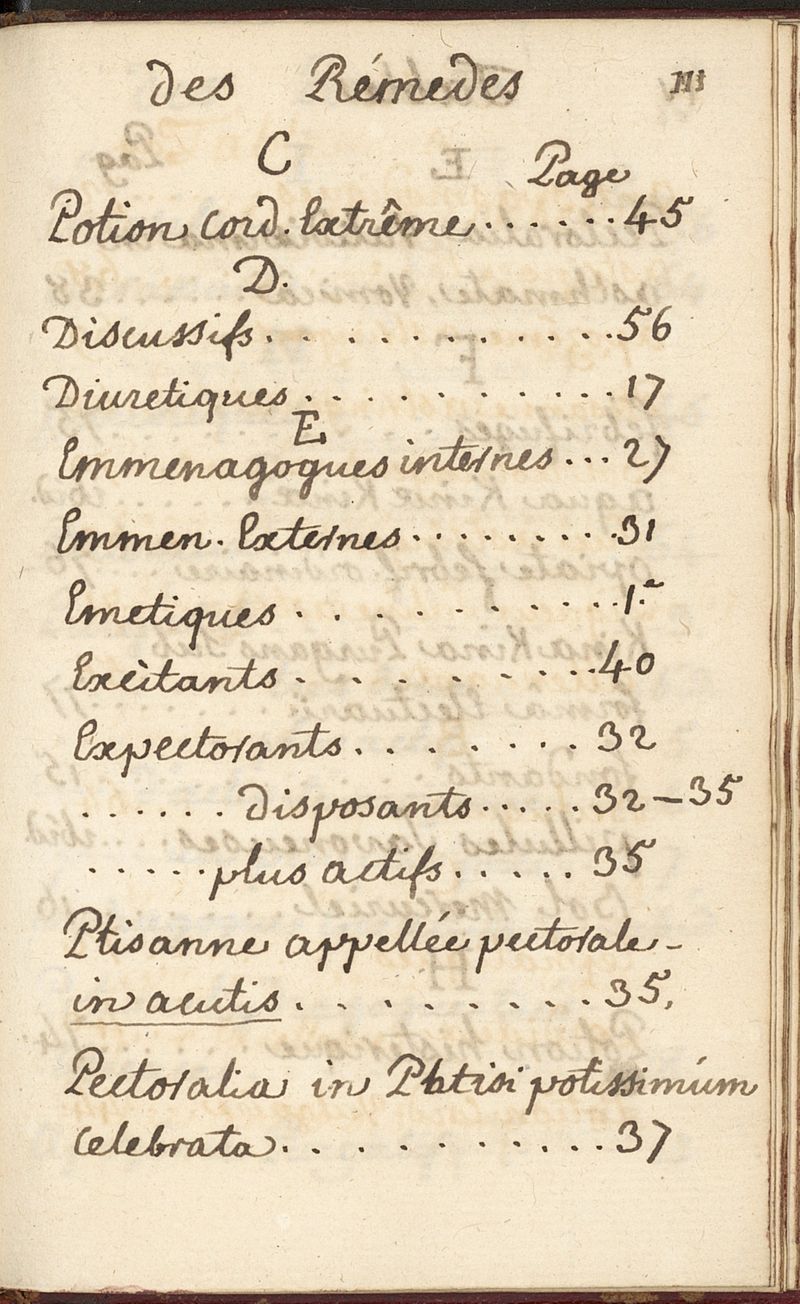 des Rémedes III
C
Page
Potion Cord. Extrême . . . . . . 45
D.
Discussifs . . . . . . . . . . . . 56
Diuretiques . . . . . . . . . . . 17
E
Emmenagogues internes ... 27
Emmen. Externes . . . . . . . . . 31
Emetiques . . . . . . . . . . . 1.e
Excitants . . . . . . . . . 40
Expectorants . . . . . . . 32
. . . . . . disposants . . . . . 32–35
. . . . . plus actifs . . . . . . 35
Ptisanne appellée pectorale-
in acutis . . . . . . . . . 35,
Pectoralia in Phtisi potissimúm
celebrata . . . . . . . . . . . 37